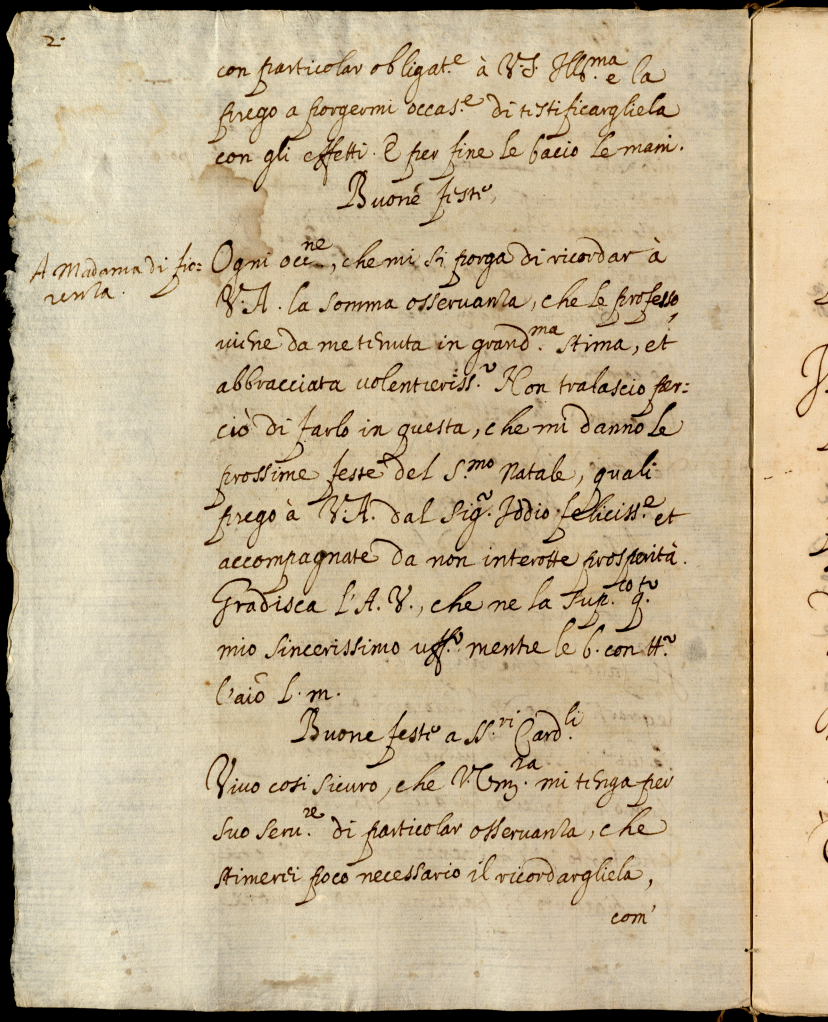 2.
con particolar obligat.e à V.S. Ill.ma e la
prego a porgermi occas.e di testificargliela
con gli effetti. E per fine le bacio le mani.
Buone feste,
A Madama di fio=
renza.
Ogni occ.ne, che mi si porga di ricordar à
V.A. la somma osservanza, che le professo,
viene da me tenuta in grand.ma stima, et
abbracciata volentieriss.o Non tralascio per:
ciò di farlo in questa, che mi danno le
prossime feste del S.mo Natale, quali
prego à V.A. dal Sig.r Iddio feliciss.e et
accompagnate da non interotte prosperità.
Gradisca l'A.V., che ne la sup.co q.to
mio sincerissimo uff.o mentre le b. con tt.o
l'aiō l. m.
Buone feste a SS.ri Card.li
Vivo così sicuro, che V. Em.za mi tenga per
suo serv.re di particolar osservanza, che
stimerei poco necessario il ricordargliela,
com'